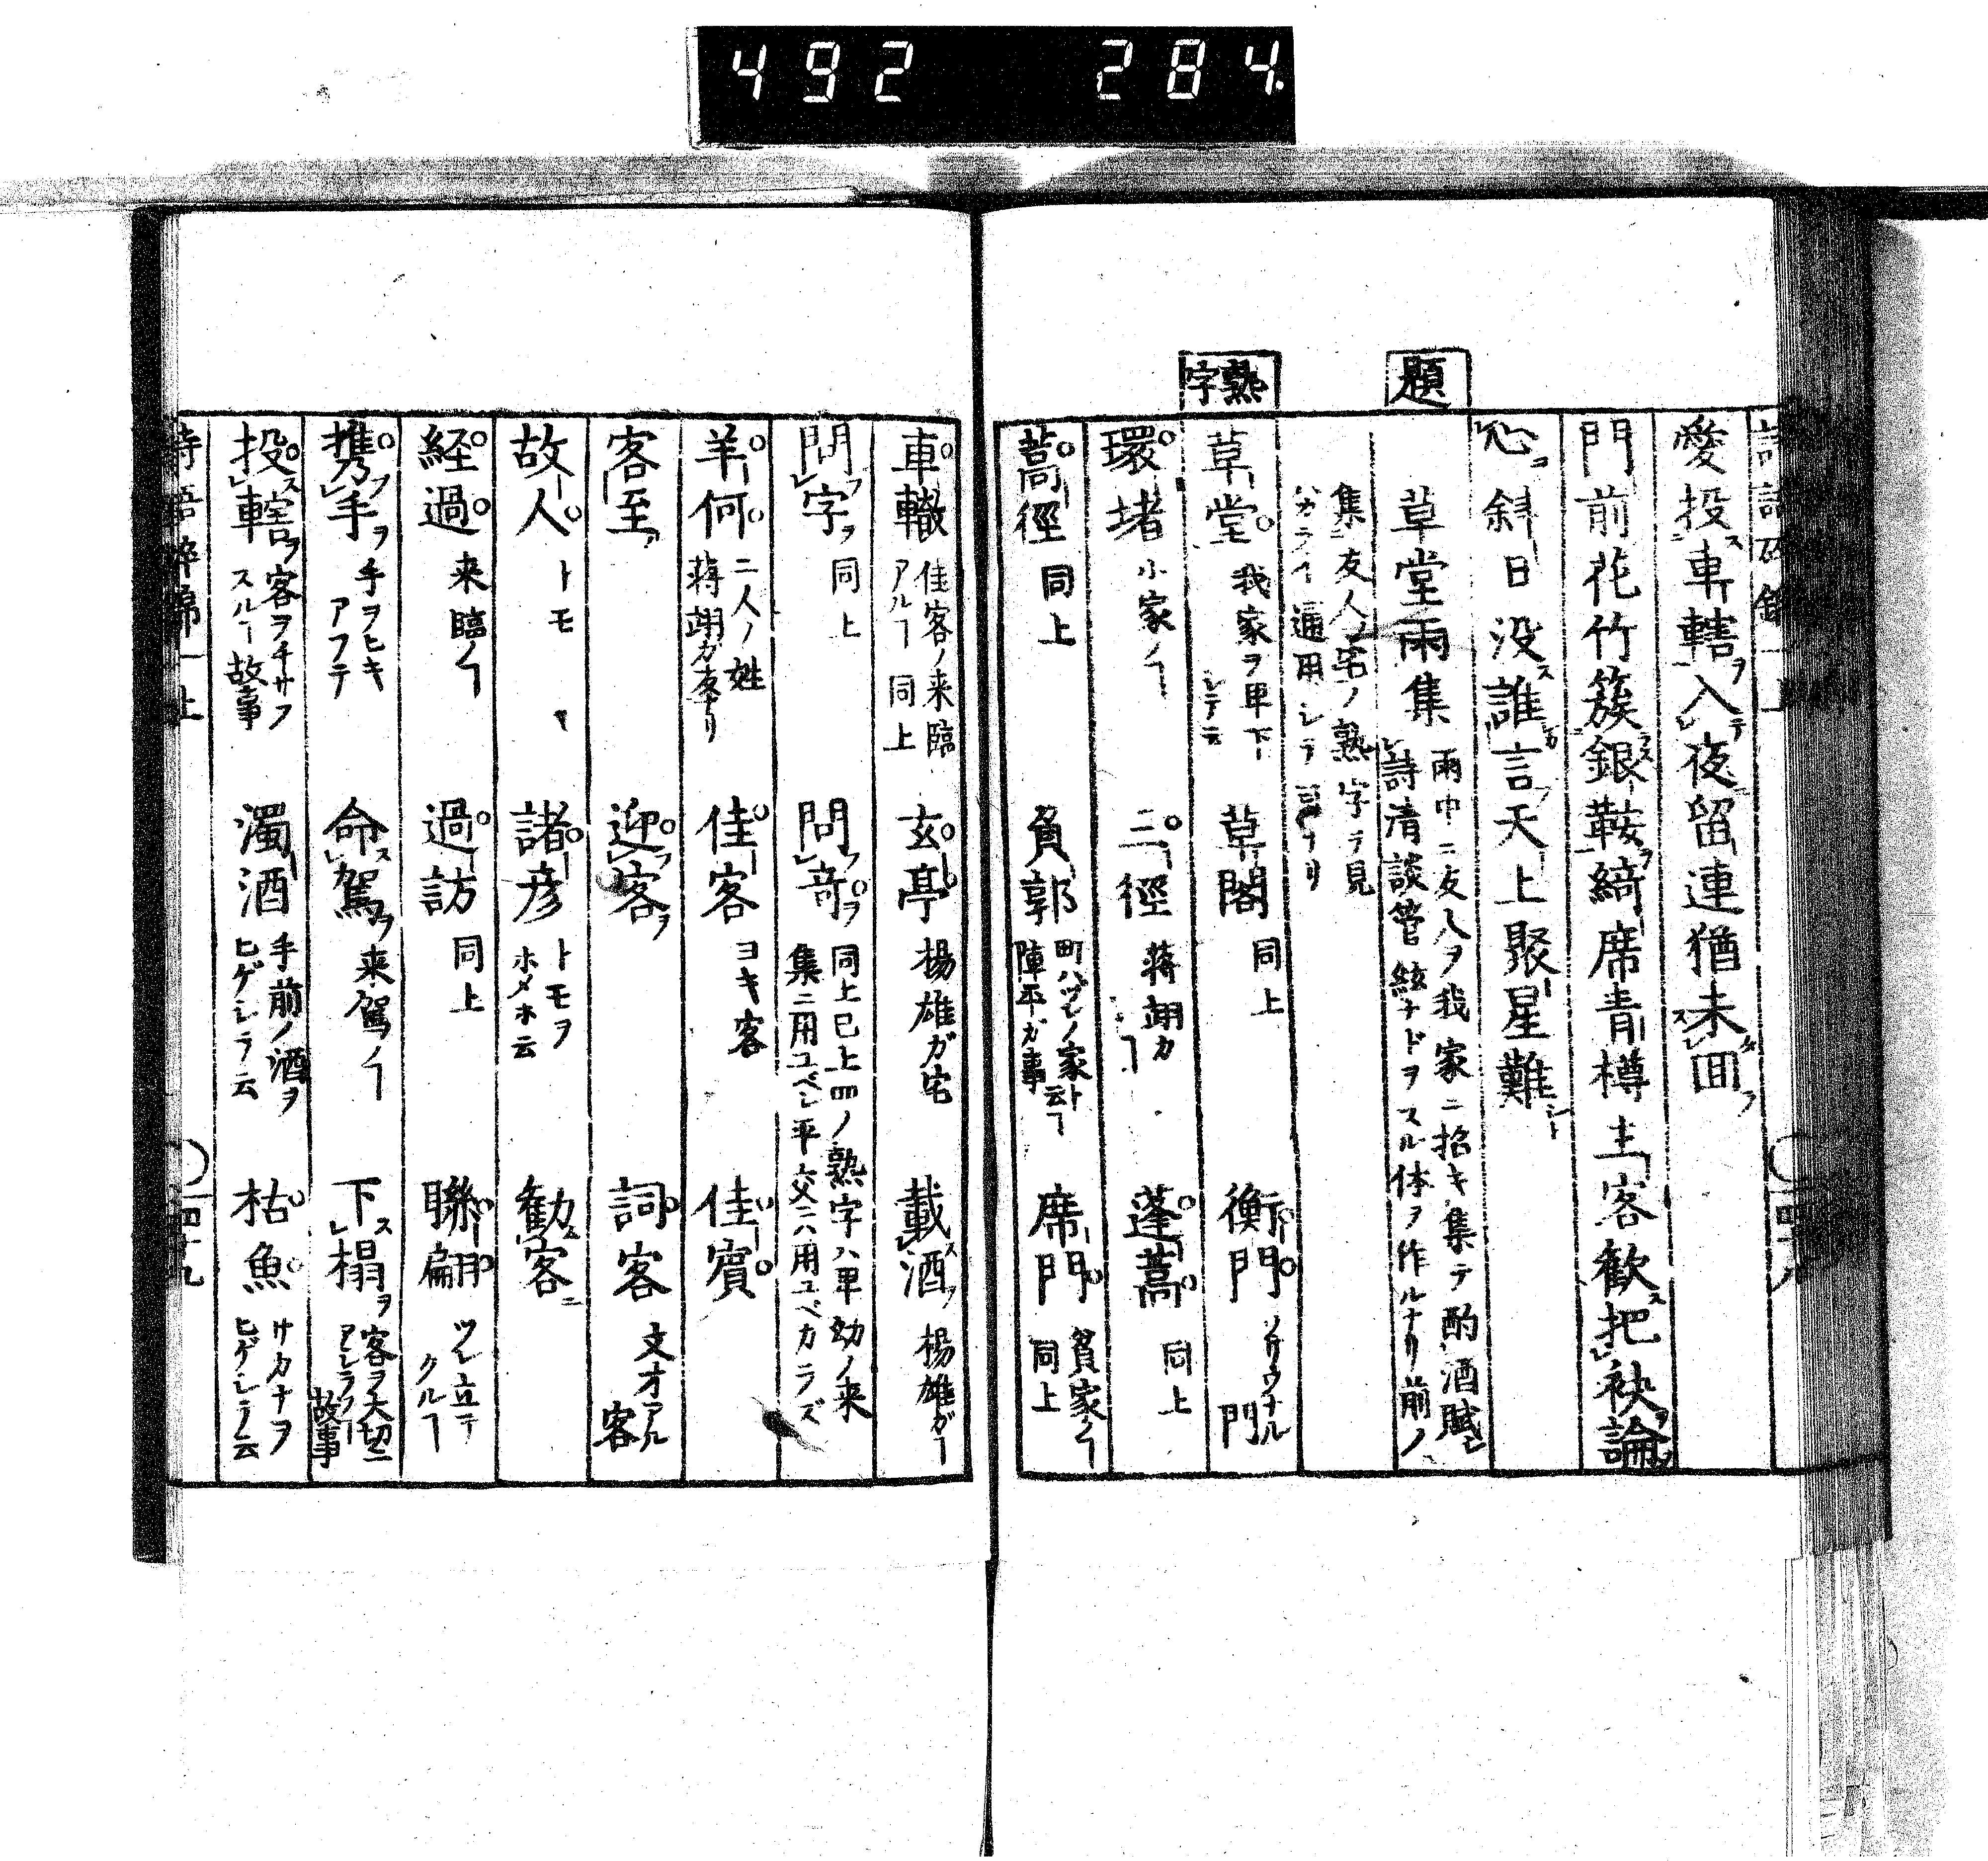 492 284.
愛投車轄入夜留連猶未囬
門前花竹簇銀鞍綺席青樽主客歓把袂論
心斜日没誰言天上聚星難
題
草堂雨集 雨中ニ友人ヲ我家ニ招キ集テ酌酒賦
詩清談管絃ナドヲスル体ヲ作ルナリ前ノ
集友人宅ノ熟字ヲ見
ハカライ通用シテ
熟字
草堂 我家ヲ卑下シテ云 草閣 同上 衡門 門
環堵 小家ノヿ 三徑 蒋詡カヿ 蓬蒿 同上
蒿徑 同上 負郭 町ハヅレノ家 陳平ガ事 席門 貧家ノヿ 同上
車轍 佳客ノ来臨アルヿ 同上 玄亭 楊雄ガ宅 載酒 楊雄ガヿ
問字 同上 問奇 同上已上四ノ熟字ハ卑幼ノ来
集ニ用ユベシ平交ニハ用ユベカラズ
羊何 二人ノ姓 蒋詡ガ友ナリ 佳客 ヨキ客 佳賓
客至 迎客 詞客 文才アル客
故人 トモ 諸彦 トモヲホメホ云 勧客
経過 来臨ノヿ 過訪 同上 聯翩 ツレ立テクルヿ
携手 手ヲヒキアフテ 命駕 来駕ノヿ 下榻 客ヲ大切ニ 故事
投轄 客ヲ スルヿ故事 濁酒 手前ノ酒ヲヒゲシテ云 枯魚 サカナヲヒゲシテ云
詩語砕錦 上
四十九